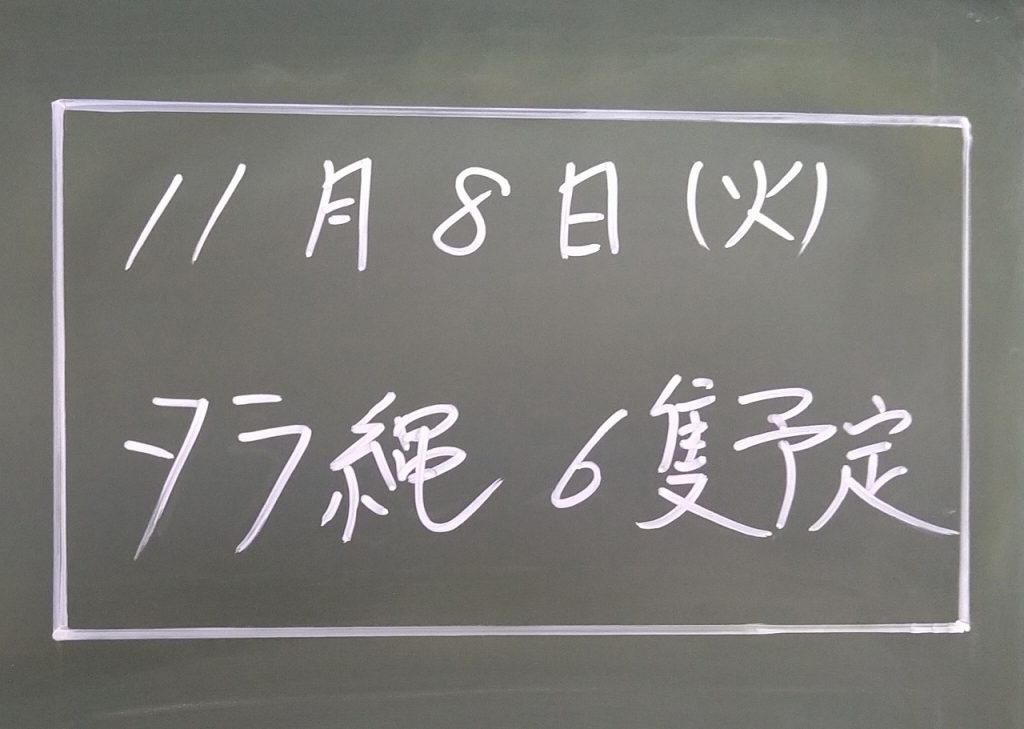 11月8日(火)
タラ縄 6隻予定